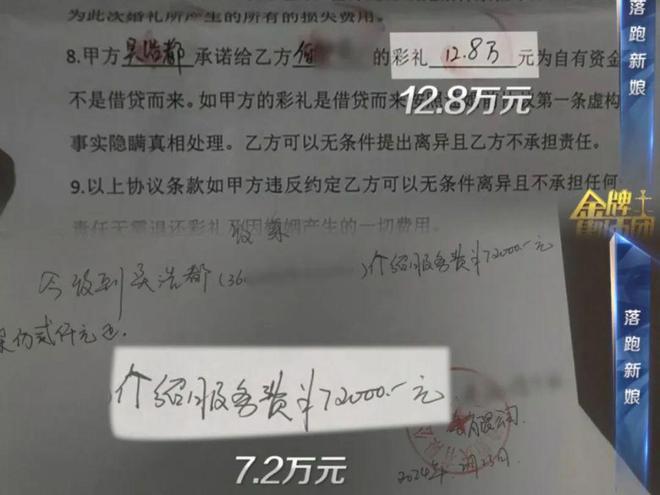 为此次婚礼所产生的所有的损失费用。
8.甲方吴浩都承诺给乙方何 的彩礼12.8万元为自有资金
12.8万元
不是借贷而来。如甲方的彩礼是借贷而来 议第一条虚构
事实隐瞒真相处理。乙方可以无条件提出离异且乙方不承担责任。
9.以上协议条款如甲方违反约定乙方可以无条件离异且不承担任何
责任无需退还彩礼及因婚姻产生的一切费用。
收条
今收到吴浩都(36. )介绍服务费¥72000.-元
仟元正
介绍服务费¥72000.-元
7.2万元
有限公司
2024年 月25日
落跑新娘
金牌
落跑新娘